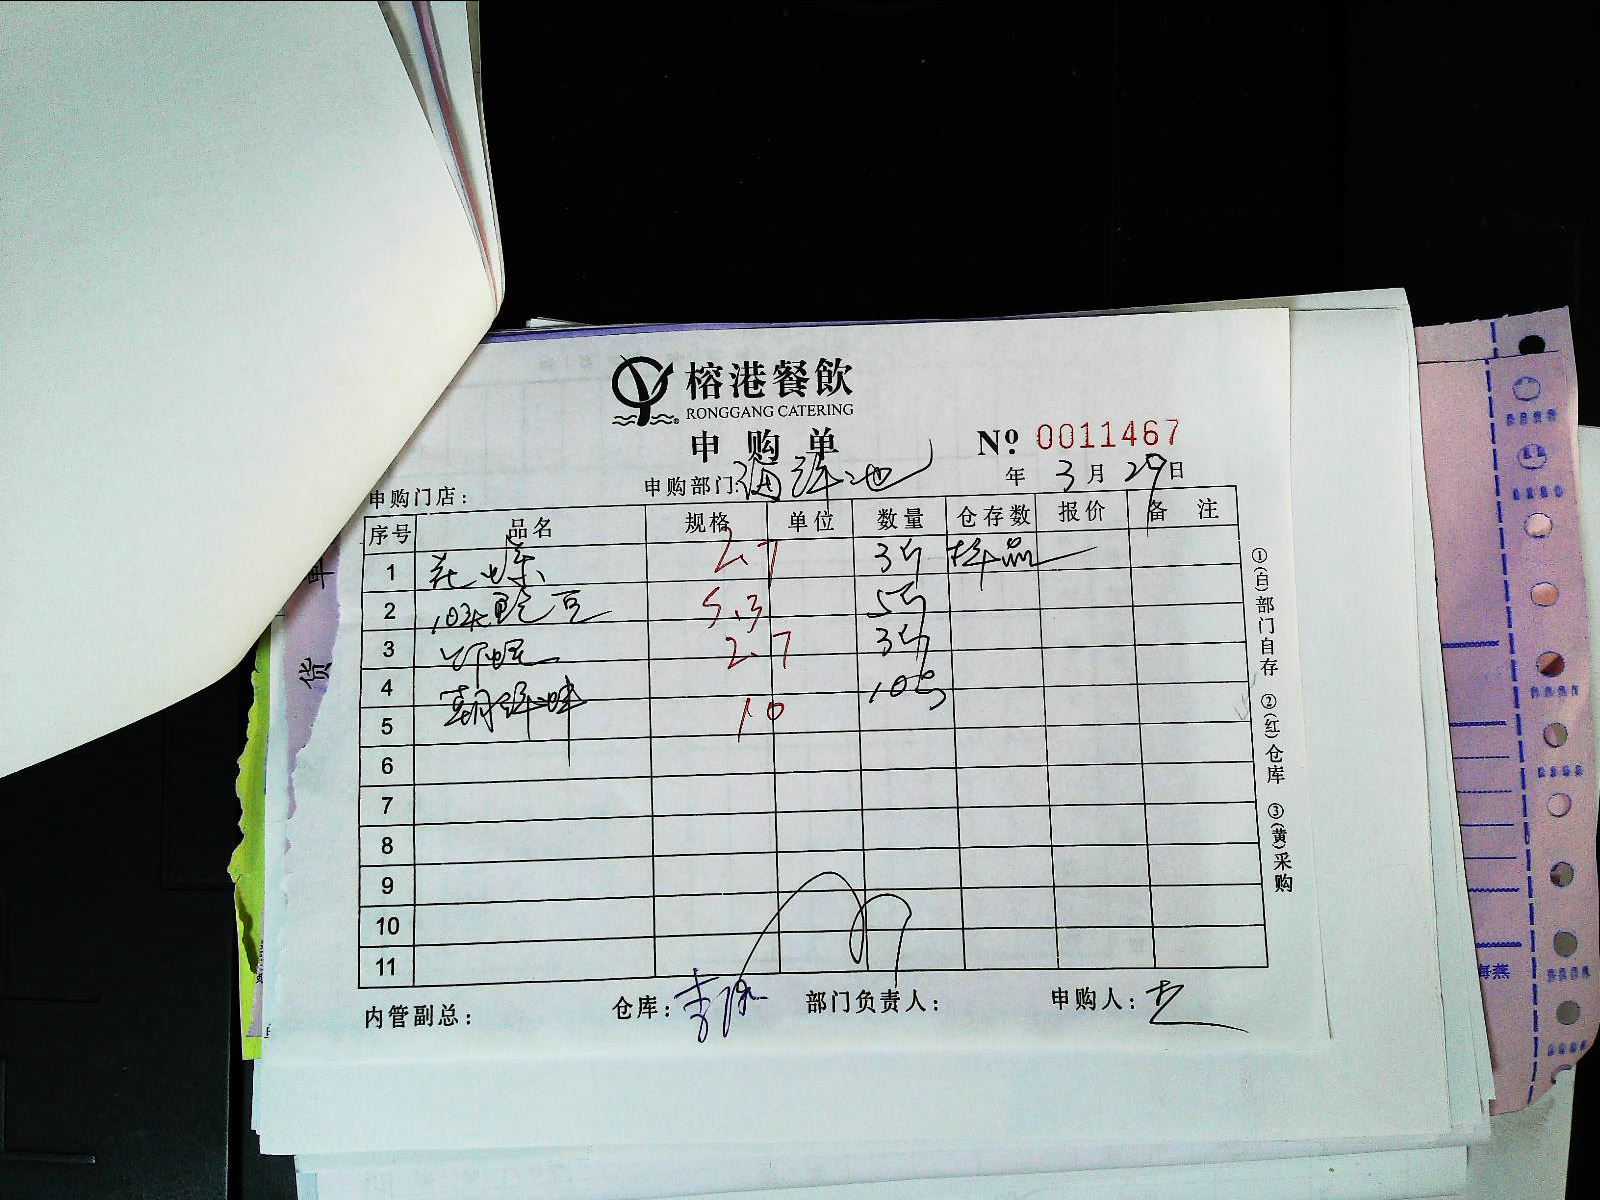 榕港餐飲
RONGGANG CATERING
申购单
No. 0011467
申购门店： 申购部门：海鲜池 年 3月 29日
序号 品名 规格 单位 数量 仓存数 报价 备注
1 花螺 2.7 3斤 样品
2 5.3 5斤
3 2.7 3斤
4 10斤
5 10
6
7
8
9
10
11
内管副总： 仓库： 部门负责人： 申购人：
①(白)部门自存 ②(红)仓库 ③(黄)采购
货
海燕